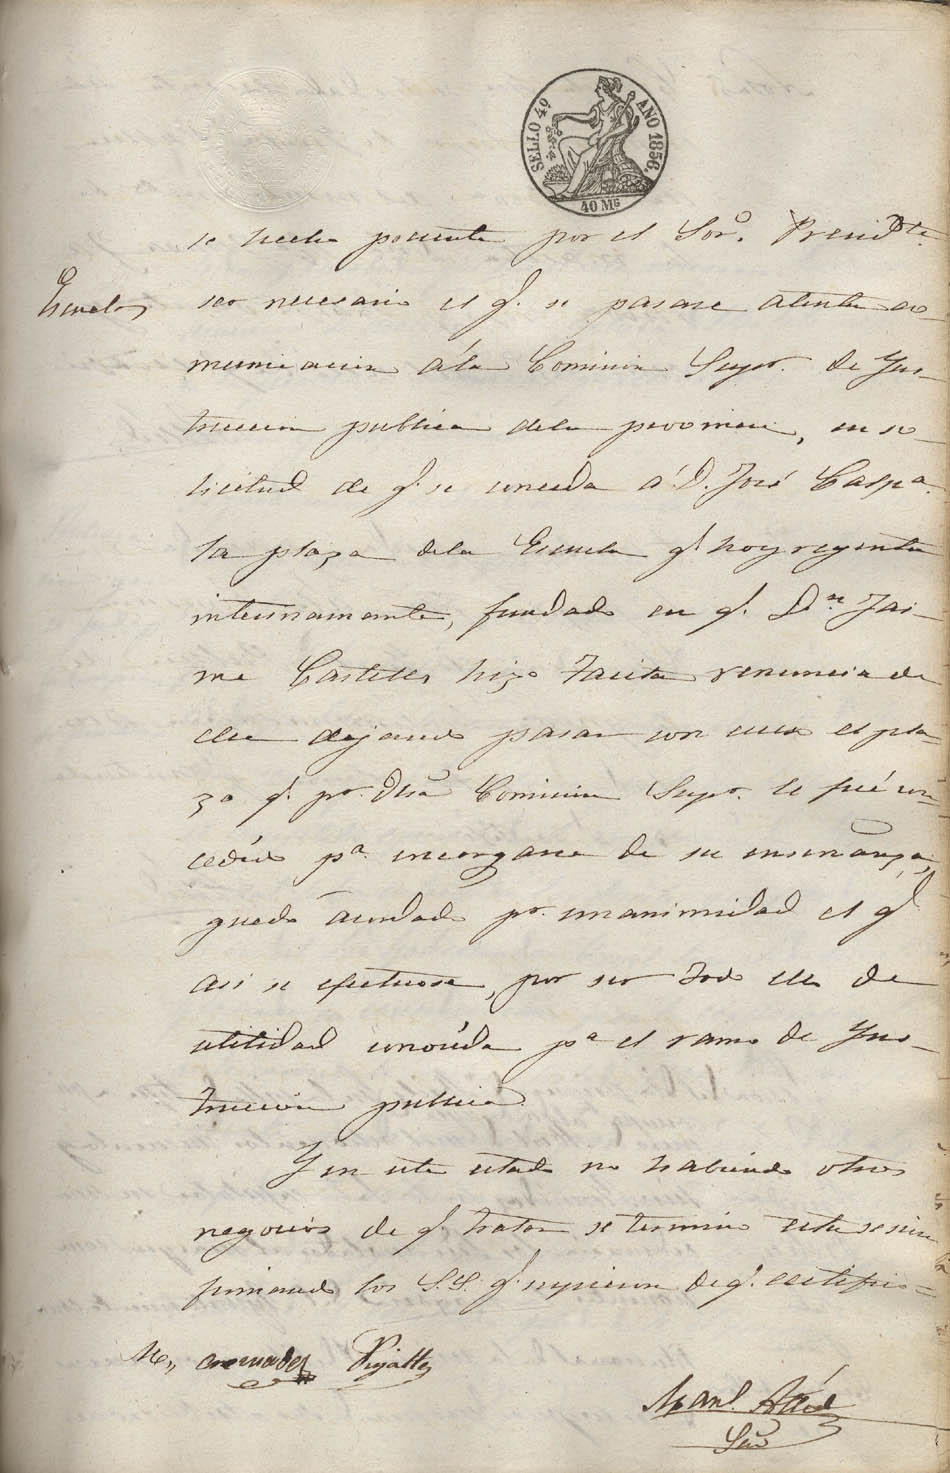 SELLO 4º AÑO 1856.
40 Ms
se hecho presente por el Sor. Presidte.
Escuelas
ser necesario el q. se pasase atenta co-
municacion á la Comision Supor. de Yns-
truccion publica dela provincia, en so-
licitud de q. se conceda á D. José Caspa
la plaza dela Escuela q. hoy regenta
interinamente, fundado en q. Dn. Jai-
me Castells hizo tacita renuncia de
ella dejando pasar con exceso el pla-
zo q. pr. dha Comision Supor. le fué con-
cedido pa. encargarse de su enseñanza,
quedó acordado pr. unanimidad el q.
asi se efectuase, por ser todo ello de
utilidad conocida pa el ramo de Yns-
truccion publica.
Y en este estado no habiendo otros
negocios de q. tratar se terminó esta sesion
firmando los S.S. q. supieron de q. certifico=
Pujalte
Manl.
Srio